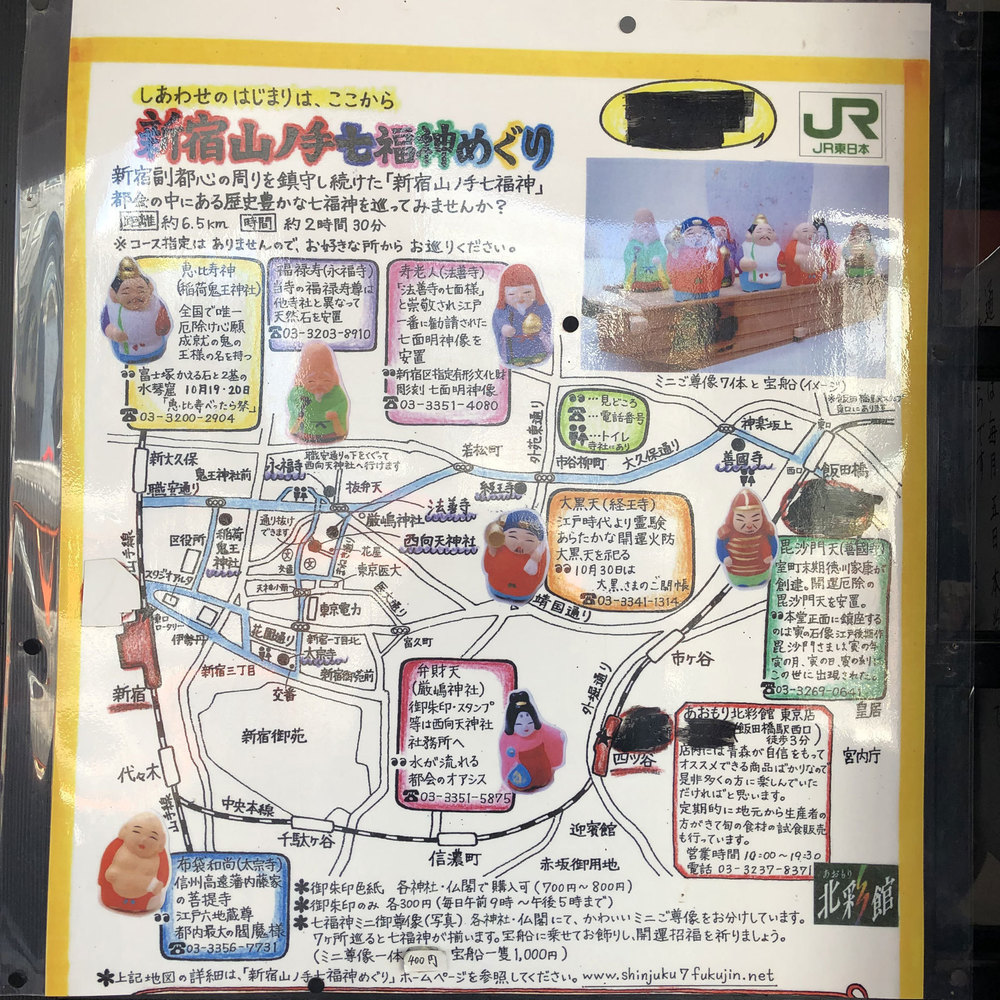 しあわせの はじまりは、ここから
新宿山ノ手七福神めぐり
JR
JR東日本
新宿副都心の周りを鎮守し続けた「新宿山ノ手七福神」
都会の中にある歴史豊かな七福神を巡ってみませんか?
距離 約6.5km 時間 約2時間30分
※コース指定は ありませんので、お好きな所から お巡りください。
恵比寿神
(稲荷鬼王神社)
全国で唯一
厄除け心願
成就の鬼の
王様の名を持つ
富士塚かえる石と2基の
水琴窟 10月19・20日
「恵比寿べったら祭」
☎03-3200-2904
福禄寿(永福寺)
当寺の福禄寿尊は
他寺社と異なって
天然石を安置
☎03-3203-8910
寿老人(法善寺)
「法善寺の七面様」
と崇敬され江戸
一番に勧請された
七面明神像を
安置
新宿区指定有形文化財
彫刻 七面明神像
☎03-3351-4080
ミニご尊像7体と宝船(イメージ)
…見どころ
☎…電話番号
…トイレ
寺社にあり
新大久保
鬼王神社前
職安通り
永福寺
職安通りの下をくぐって
西向天神社へ行けます
抜弁天
若松町
外苑東通り
市谷柳町
大久保通り
神楽坂上
善國寺
東口
西口
飯田橋
経王寺
法善寺
厳嶋神社
西向天神社
通り抜け
できます
花屋
東京医大
区役所
稲荷
鬼王
神社
山手線
スタジオアルタ
天神小前
東京電力
東口
ロータリー
伊勢丹
花園通り
新宿一丁目北
太宗寺
新宿御苑前
新宿三丁目
交番
富久町
靖国通り
新宿
新宿御苑
代々木
山手線
中央本線
千駄ヶ谷
信濃町
外堀通り
市ヶ谷
四ツ谷
迎賓館
赤坂御用地
皇居
宮内庁
大黒天(経王寺)
江戸時代より霊験
あらたかな開運火防
大黒天を祀る
10月30日は
大黒さまのご開帳
☎03-3341-1314
毘沙門天(善國寺)
室町末期徳川家康が
創建。開運厄除の
毘沙門天を安置。
本堂正面に鎮座する
のは寅の石像江戸後期作
毘沙門さまは寅の年
寅の月、寅の日、寅の刻に
この世に出現された。
☎03-3269-0641
弁財天
(厳嶋神社)
御朱印・スタンプ
等は西向天神社
社務所へ
水が流れる
都会のオアシス
☎03-3351-5875
あおもり北彩館 東京店
(飯田橋駅西口
徒歩3分)
店内には青森が自信をもって
オススメできる商品ばかりなので
是非多くの方に楽しんでいた
だければと思います。
定期的に地元から生産者の
方がきて旬の食材の試食販売
も行っています。
営業時間 10:00〜19:30
電話 03-3237-8371
あおもり
北彩館
布袋和尚(太宗寺)
信州高遠藩内藤家
の菩提寺
江戸六地蔵尊
都内最大の閻魔様
☎03-3356-7731
*御朱印色紙 各神社・仏閣で購入可(700円〜800円)
*御朱印のみ 各300円(毎日午前9時〜午後5時まで)
*七福神ミニ御尊像(写真)各神社・仏閣にて、かわいいミニご尊像をお分けしています。
7ヶ所巡ると七福神が揃います。宝船に乗せてお飾りし、開運招福を祈りましょう。
(ミニ尊像一体 400円 宝船一隻1,000円)
*上記地図の詳細は、「新宿山ノ手七福神めぐり」ホームページを参照してください。www.shinjuku7fukujin.net